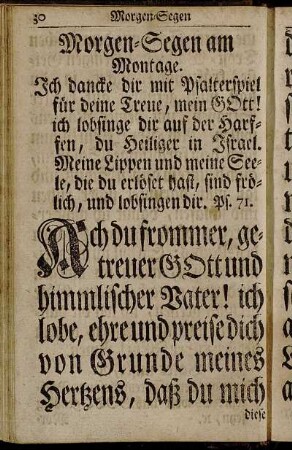 30 Morgen-Segen
Morgen-Segen am
Montage.
Ich dancke dir mit Psalterspiel
für deine Treue, mein GOtt!
ich lobsinge dir auf der Harf-
fen, du Heiliger in Israel.
Meine Lippen und meine See-
le, die du erlöset hast, sind frö-
lich, und lobsingen dir. Ps. 71.
Ach du frommer, ge-
treuer GOtt und
himmlischer Vater! ich
lobe, ehre und preise dich
von Grunde meines
Hertzens, daß du mich
diese